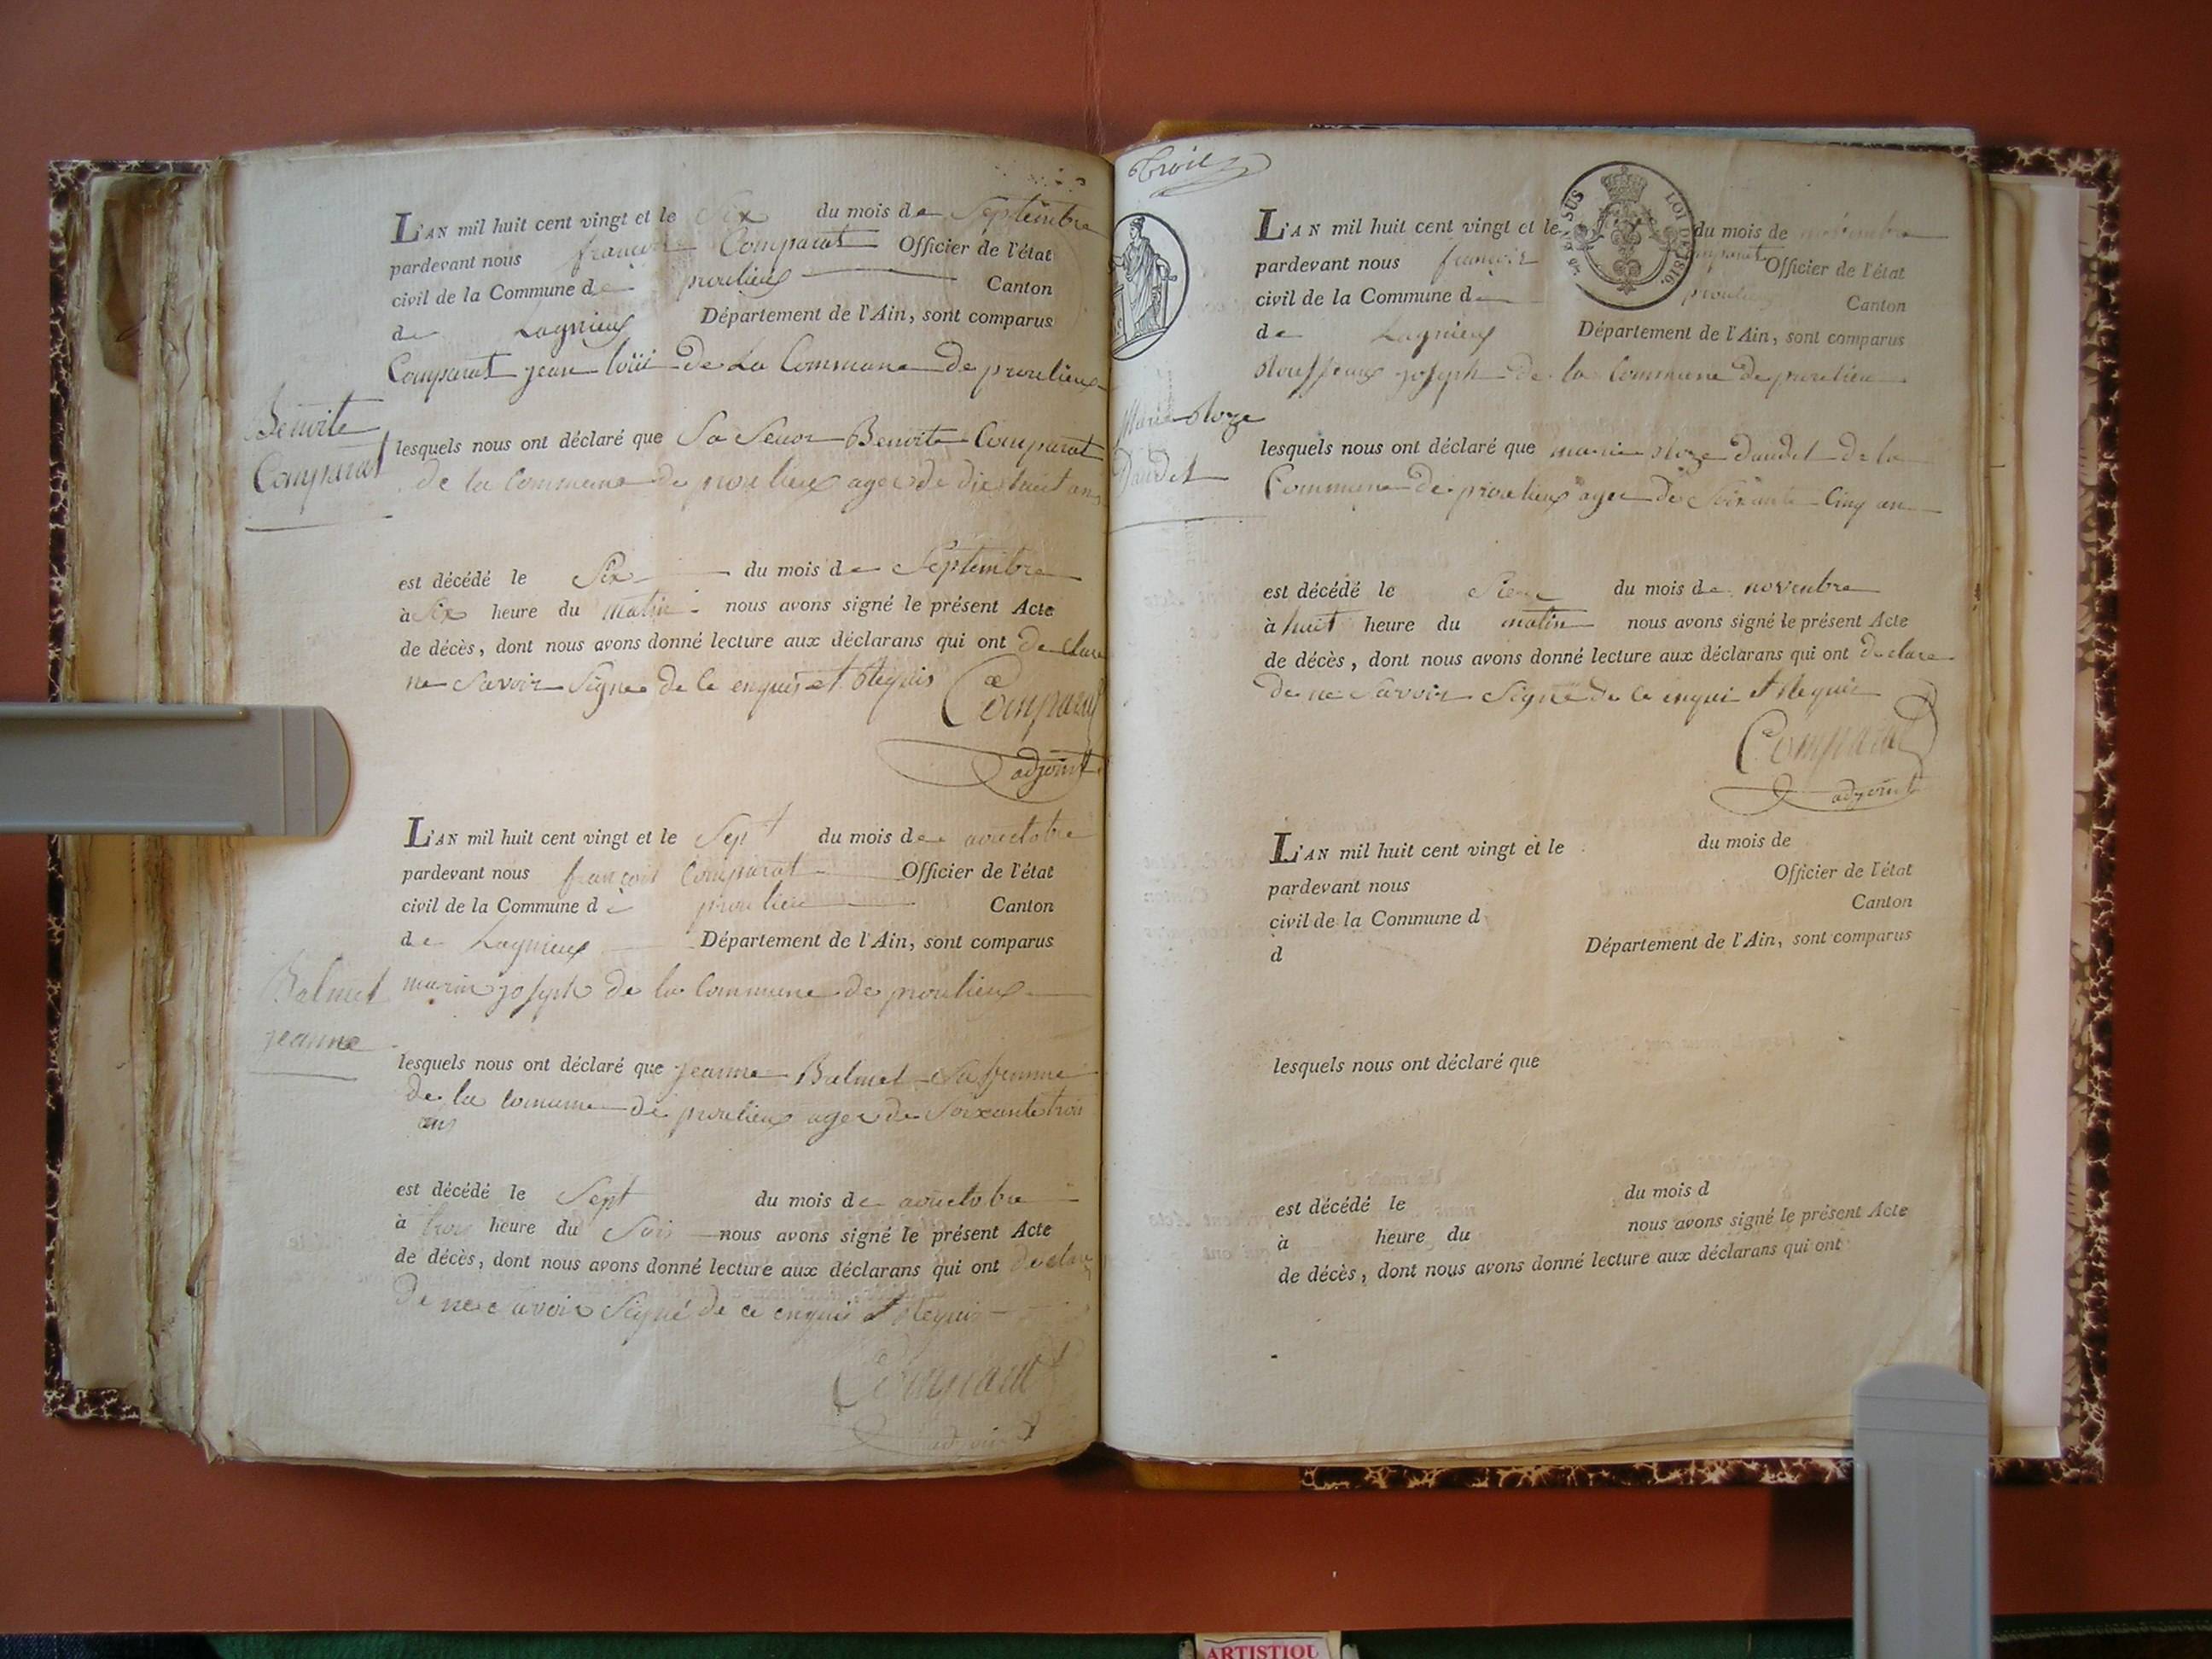 L'AN mil huit cent vingt et le Six du mois de Septembre
pardevant nous francois Comparat Officier de l'état
civil de la Commune de proulieux Canton
de Lagnieux Département de l'Ain, sont comparus
Comparat jean loüi de La Commune de proulieux
Benoite
Comparat
lesquels nous ont déclaré que Sa Seuor Benoite Comparat
de la Commune de proulieux agee de dix huit ans
est décédé le Six du mois de Septembre
à Six heure du Matin nous avons signé le présent Acte
de décès, dont nous avons donné lecture aux déclarans qui ont declare
ne Savoir Signe de ce enquis et Requis
Comparat
adjoint
L'AN mil huit cent vingt et le Sept du mois de aouctobre
pardevant nous francois Comparat Officier de l'état
civil de la Commune de proulieu Canton
de Lagnieux Département de l'Ain, sont comparus
Balmet
jeanne
marin joseph de la Commune de proulieux
lesquels nous ont déclaré que jeanne Balmet Sa femme
de la comune de proulieux agee de Soixante trois
ans
est décédé le Sept du mois de aouctobre
à trois heure du Soir nous avons signé le présent Acte
de décès, dont nous avons donné lecture aux déclarans qui ont declare
de ne Savoir Signé de ce enquis et Requis
Comparat
adjoint
Trois
TIMBRE SUS LOI DE 1816.
L'AN mil huit cent vingt et le du mois de novembre
pardevant nous francois Comparat Officier de l'état
civil de la Commune de proulieu Canton
de Lagnieux Département de l'Ain, sont comparus
joseph de la Commune de proulieu
Marie Roze
Daudet
lesquels nous ont déclaré que marie Roze Daudet de la
Commune de proulieux agee de Soixante Cinq an
est décédé le du mois de novembre
à huit heure du matin nous avons signé le présent Acte
de décès, dont nous avons donné lecture aux déclarans qui ont declare
de ne Savoir Signé de ce enqui et Requis
Comparat
adjoint
L'AN mil huit cent vingt et le du mois de
pardevant nous Officier de l'état
civil de la Commune d Canton
d Département de l'Ain, sont comparus
lesquels nous ont déclaré que
est décédé le du mois d
à heure du nous avons signé le présent Acte
de décès, dont nous avons donné lecture aux déclarans qui ont
ARTISTIQU